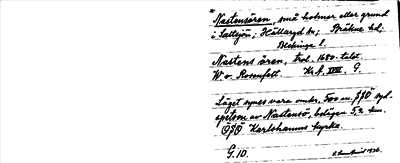 "Nastensören, små holmar eller grund
i Saltsjön; Hällaryd sn; Bräkne hd;
Blekinge l.
Nastens ören, trol. 1680-talet.
W. v. Rosenfelt. Kr. A. XVIII. 9.
Läget synes vara omkr. 500 m. SSO syd-
spetsen av Nastensö, belägen 5,2 km.
OSO Karlshamns kyrka.
G. 10.